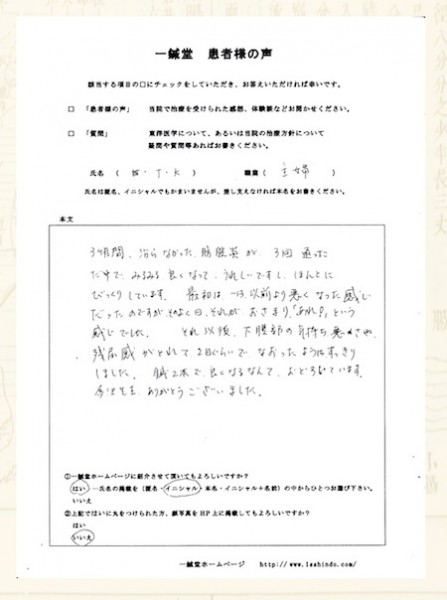 一鍼堂 患者様の声
該当する項目の□にチェックをしていただき、お答えいただければ幸いです。
□ 「患者様の声」 当院で治療を受けられた感想、体験談などお聞かせください。
□ 「質問」 東洋医学について、あるいは当院の治療方針について
疑問や質問等あればお書きください。
氏名 ( ・T・K ) 職業 ( 主婦 )
氏名は匿名、イニシャルでもかまいませんが、差し支えなければ本名をお書きください。
本文
3ヶ月間、治らなかった膀胱炎が、3回通った
だけで、みるみる良くなって、うれしいですし、ほんとに
びっくりしています。 最初は一日、以前より悪くなった感じ
だったのですが、そのよく日、それが、おさまり、「あれ?」という
感じでした。 それ以後、下腹部の気持ち悪さや、
残尿感がとれて、2日ぐらいで、なおったようにすっきり
しました。 鍼2本で、良くなるなんて、おどろいています。
先生、ありがとうございました。
①一鍼堂ホームページに紹介させて頂いてもよろしいですか?
はい ―氏名の掲載を(匿名・イニシャル・本名・イニシャル+名前)の中からひとつお選び下さい。
いいえ
②上記ではいに丸をつけられた方、顔写真をHP上に掲載してもよろしいですか?
はい
いいえ
一鍼堂ホームページ http://www.1sshindo.com/